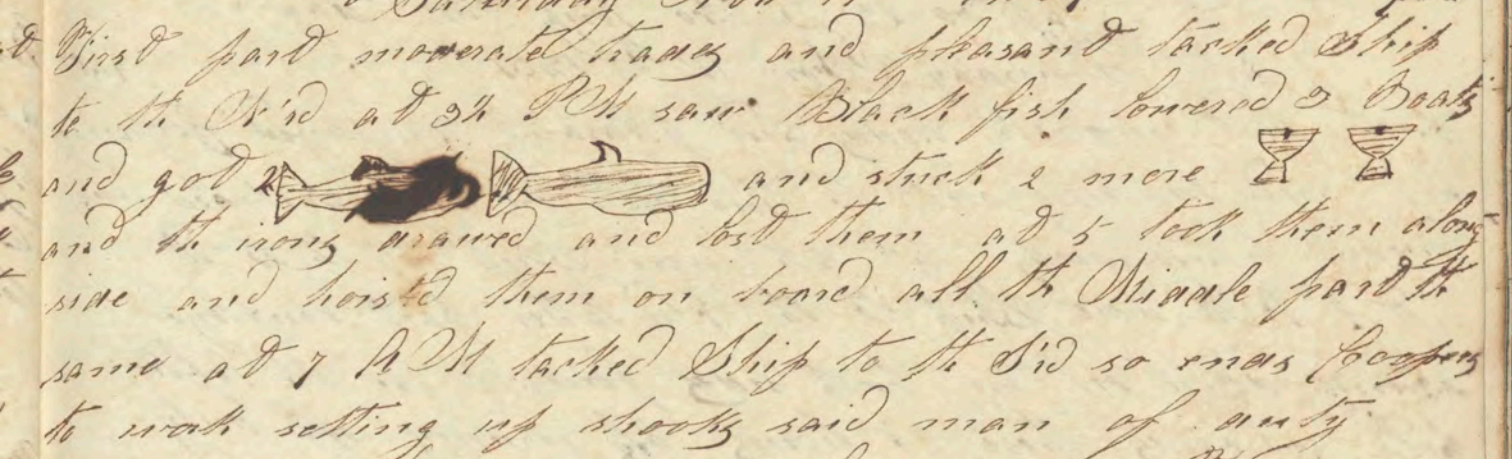 Saturday
First part moderate trades and pleasant tacked Ship
to th N'rd at 3½ PM saw Black fish lowered 3 Boats
and got 2 and struck 2 more
and th irons drawed and lost them at 5 took them along
side and hoisted them on board all th Middle part th
same at 7 AM tacked Ship to th S'rd so ends Coopers
to work setting up shooks said man of duty